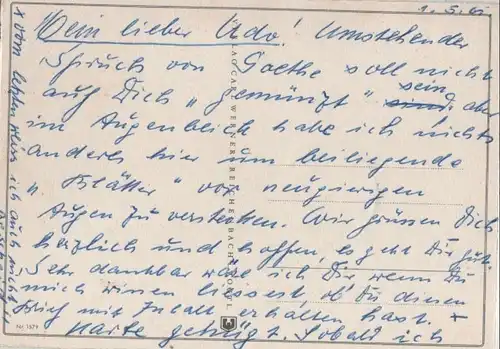 1.5.61
Mein lieber Udo! Umstehender
Spruch von Goethe soll nicht
auf Dich „gemünzt“ sein, aber
im Augenblick habe ich nichts
anderes hier um beiliegende
„Blätter“ vor neugierigen
Augen zu verstecken. Wir grüssen Dich
herzlich und hoffen, es geht Dir gut.
Sehr dankbar wäre ich Dir, wenn Du
mich wissen liessest, ob Du diesen
Brief mit Inhalt erhalten hast. +
Karte genügt. Sobald ich
x vom letzten ich auch nicht
VERLAG CARL WERNER, REICHENBACH VOGTL.
Nr. 1579